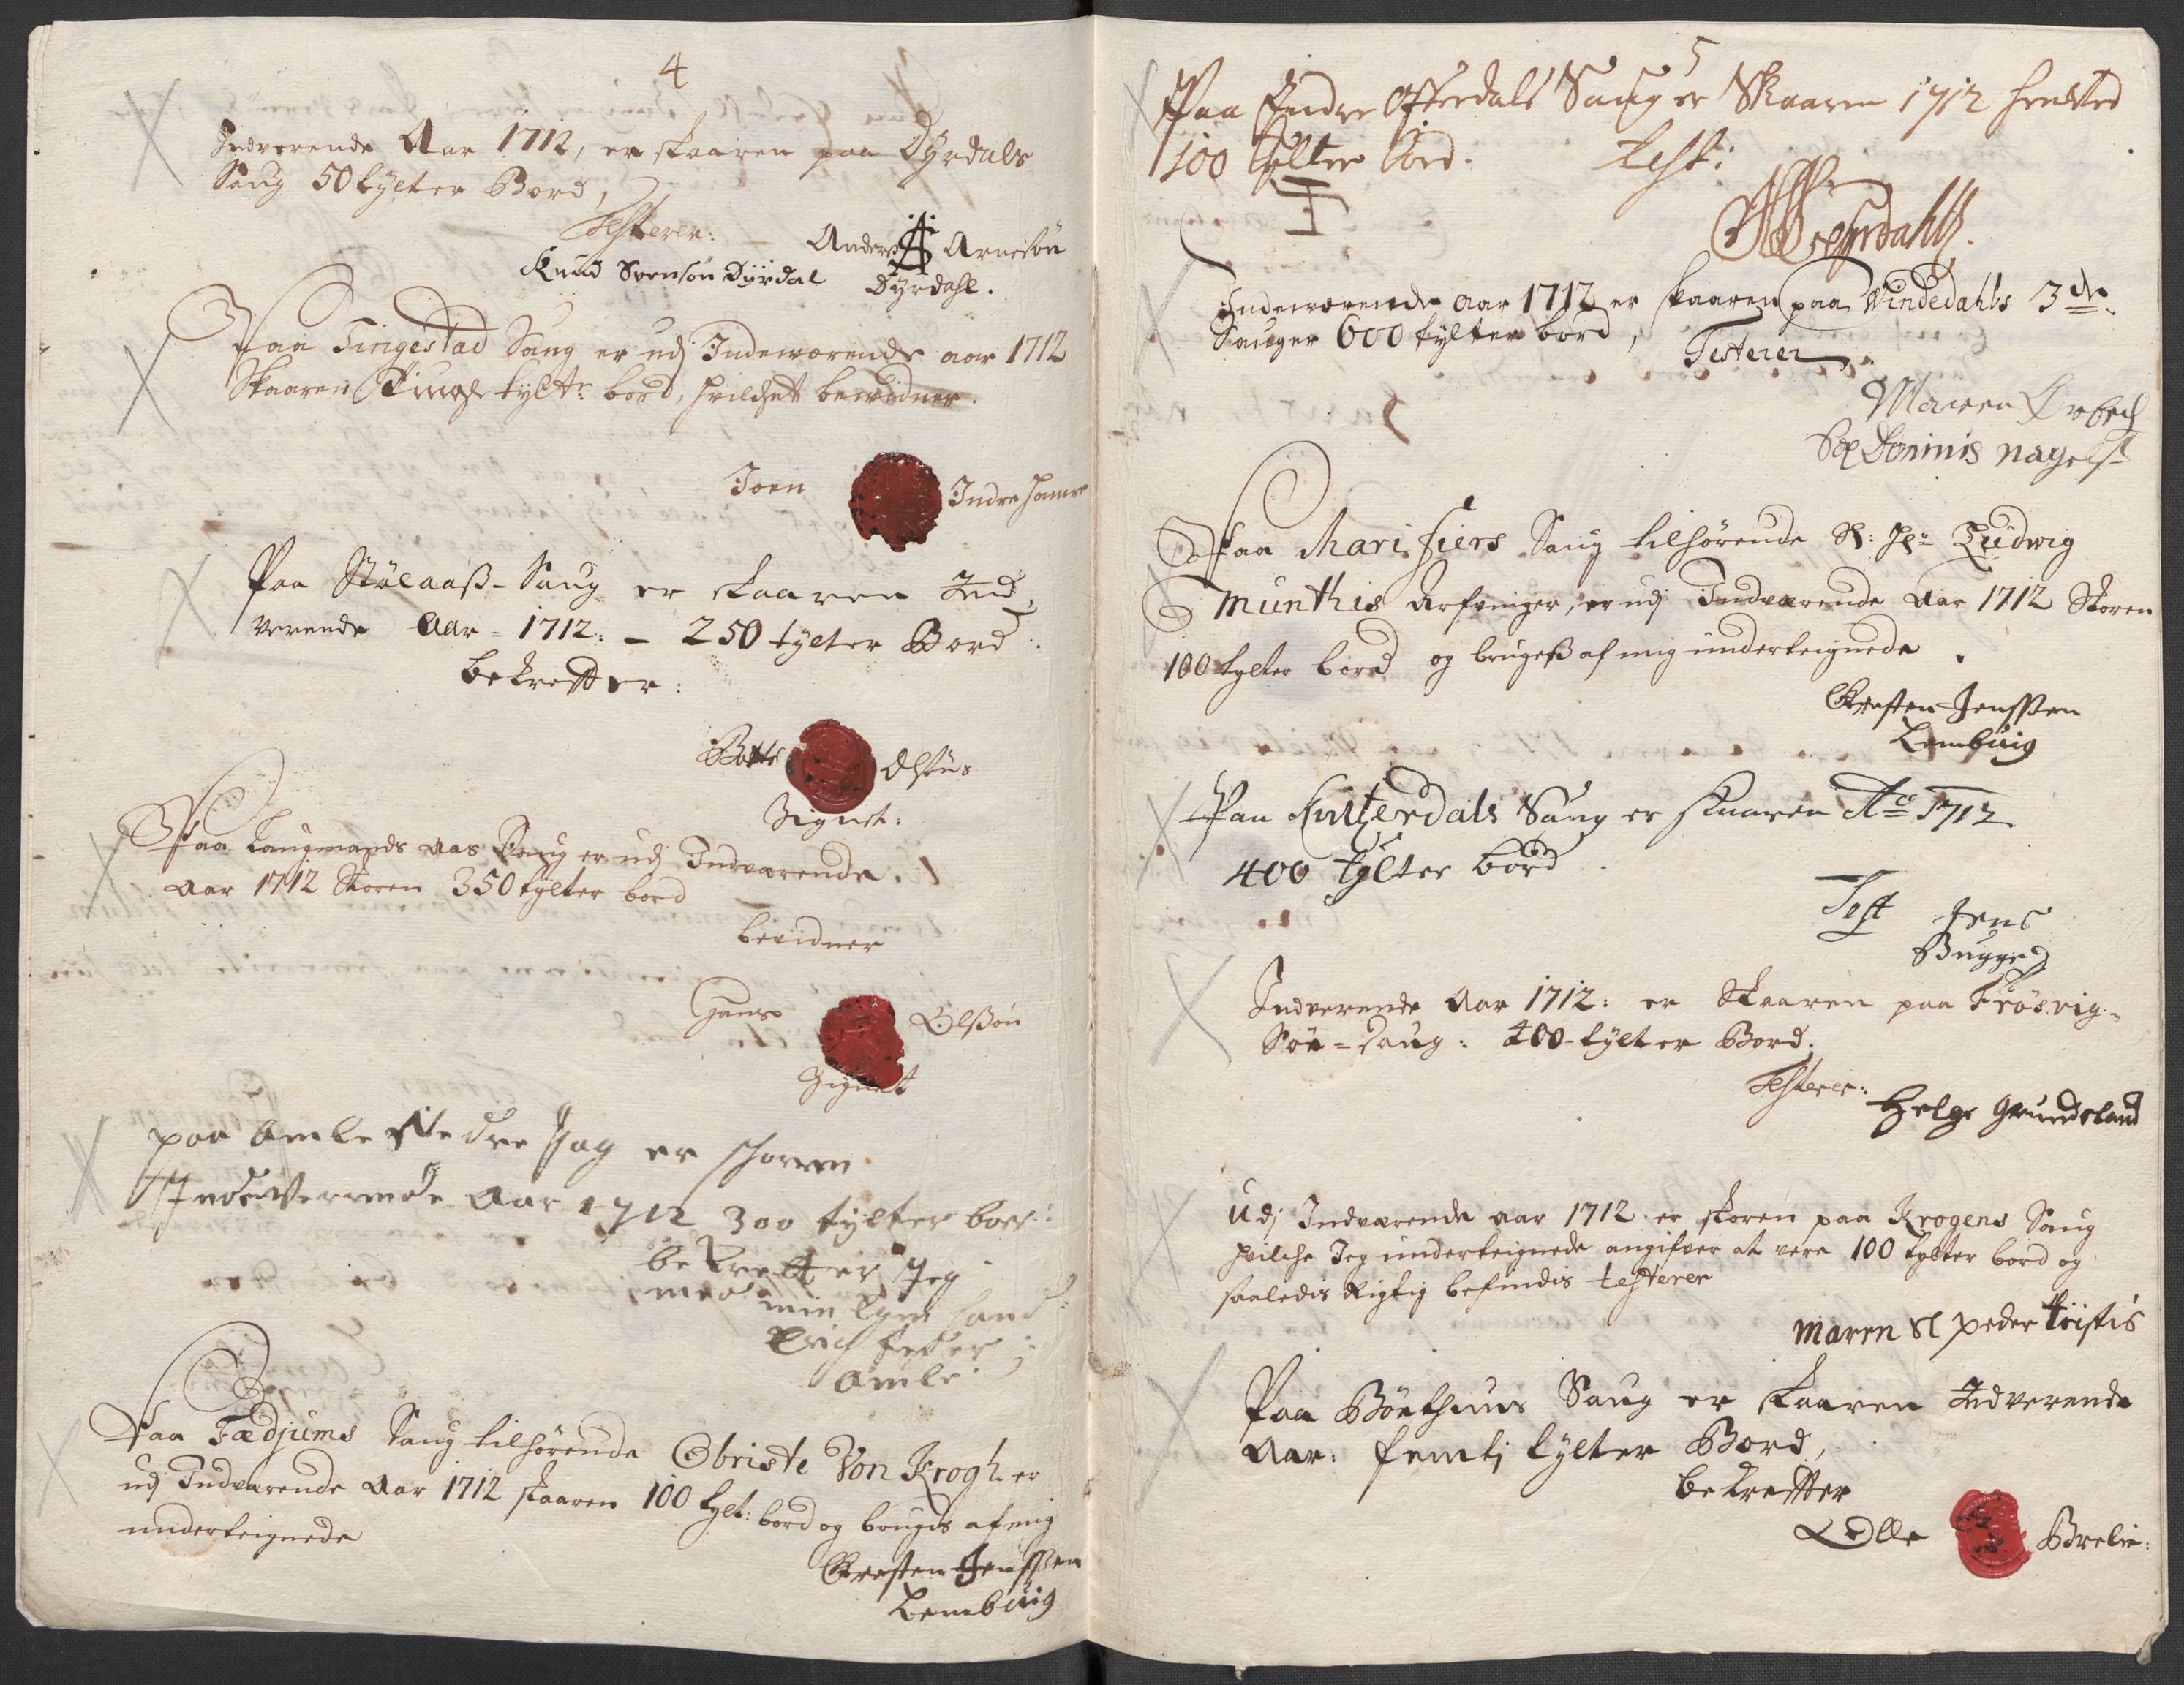 4
Indverende Aar 1712, er skaaren paa Dyrdals
Saug 50 tylter Bord,
Testerer:
Anders A Arnesøn
Knud Svensøn Dyrdal Dyrdahl.
Paa Tingestad Saug er udj Indeworende aar 1712
Skaaren tylt: bord, hvilchet bewidner.
Joen Indre hamre
Paa Stølaaß-Saug er skaaren Ind,
verende Aar = 1712: - 250 tylter Bord:
bekrefter:
Botte Olsøns
Signet:
Paa Laugmands aas Saug er udj Indværende
aar 1712 Skoren 350 tylter bord
bevidner
Hans Olßøn
Signet
paa Amle Nedre Sag er skorren
Indeverrende Aar 1712 300 tylter bord:
bekrefter Jeg
med min Egen hand:
Erich
Amle
Paa Fædjums Saug tilhørende Obriste Von Krogh er
udj Indværende Aar 1712 skaaren 100 tylt: bord og bruges af mig
underteignede
Chresten Jenssen
Lembuig
5
Paa Endre Offerdals Saug er Skaaren 1712 henved
100 tylter bord. test:
Indeworende aar 1712 er skaaren paa Vindedahls 3de
Sauger 600 tylter bord,
Testerer
Maren
Sl Dominis Nagels
Paa Marifiers Saug tilhørende Sl: Hr: Ludwig
Munthis Arfvinger, er udj Indværende Aar 1712 Skoren
100 tylter bord og brugeß af mig underteignede
Chresten Jenssen
Lembuig
Paa Kulterdals Saug er skaaren Ao 1712
400 tylter bord
Test Jens
Bugge
Indverende Aar 1712: er Skaaren paa Frøsvig-
Søe-Saug: 400 tylter Bord.
Testerer:
Helge Grundeland
Udj Indværende aar 1712 er skoren paa Krogens Saug
hvilche Jeg underteignede angifver at vere 100 tylter bord og
saaledis Rigtig befindis testerer
Maren Sl Peder Tüstis
Paa Bøethuus Saug er skaaren Indverende
Aar: femti tylter Bord,
bekrefter
Olle Brelie: